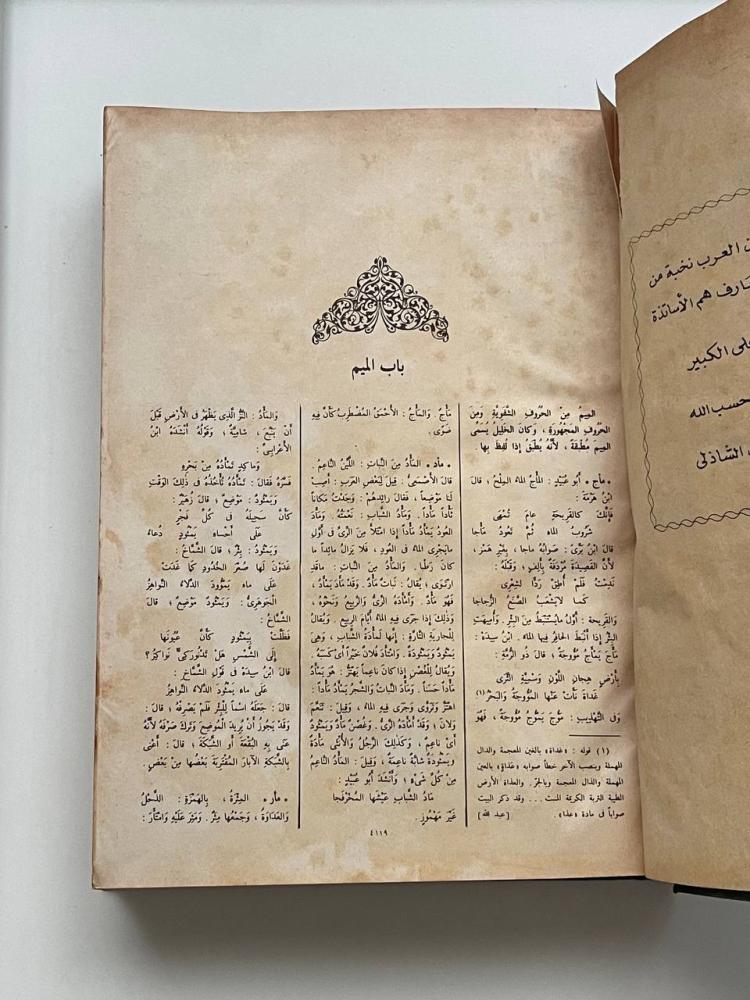 باب الميم
الميمُ مِنَ الحُرُوفِ الشَّفَوِيَّةِ وَمِنَ
الحُرُوفِ المَجْهُورَةِ ، وَكَانَ الخَلِيلُ يُسَمِّى
المِيمَ مُطْبَقَةً ، لأَنَّهُ يُطْبَقُ إِذَا لُفِظَ بِها .
• مأج • أَبُو عُبَيْدٍ : المَأْجُ المَاءُ المِلْحُ ؛ قالَ
ابْنُ هَرْمَةَ :
فَإِنَّكَ كالقَرِيحَةِ عامَ تُمْهَى
شَرُوبُ الماءِ ثُمَّ تَعُودُ مَأْجا
قالَ ابْنُ بَرِّىّ : صَوابُهُ ماجا ، بِغَيْرِ هَمْزٍ ،
لأَنَّ القَصِيدَةَ مُرْدَفَةٌ بِأَلِفٍ ، وَقَبْلَهُ :
نَدِمْتُ فَلَمْ أُطِقْ رَدًّا لِشِعْرِى
كَما لا يَشْعَبُ الصَّنَعُ الزُّجاجا
والقَرِيحَةُ : أَوَّلُ ما يُسْتَنْبَطُ مِنَ البِئْرِ . وَأُمِيهَتِ
البِئْرُ إِذا أَنْبَطَ الحافِرُ فِيها الماءَ . ابْنُ سِيدَهْ :
مَأَجَ يَمْأَجُ مُؤُوجَةً ؛ قالَ ذُو الرُّمَّةِ :
بِأَرْضٍ هِجانِ اللَّوْنِ وَسْمِيَّةِ الثَّرَى
غَداةَ نَأَتْ عَنْها المُؤُوجَةُ وَالبَحْرُ (١)
وَفِى التَّهْذِيبِ : مَؤُجَ يَمْؤُجُ مُؤُوجَةً ، فَهُوَ
(١) قوله : «غداة» بالغين المعجمة والدال
المهملة وبنصب الآخر خطأ صوابه «عَذاةٍ» بالعين
المهملة والذال المعجمة وبالجرّ. والعذاة الأرض
الطيبة التربة الكريمة المنبت ... وقد ذكر البيت
صواباً فى مادة «عذا» . [عبد الله]
مَأْجٌ . وَالمَأْجُ : الأَحْمَقُ المُضْطَرِبُ كَأَنَّ فِيهِ
ضَوًى .
• مأد • المَأْدُ مِنَ النَّباتِ : اللَّيِّنُ النَّاعِمُ .
قالَ الأَصْمَعِىُّ : قِيلَ لِبَعْضِ العَرَبِ : أَصِبْ
لَنا مَوْضِعاً ، فَقالَ رائِدُهُمْ : وَجَدْتُ مَكاناً
ثَأْداً مَأْداً . وَمَأْدُ الشَّبابِ : نَعْمَتُهُ . وَمَأَدَ
العُودُ يَمْأَدُ مَأْداً إِذا امْتَلأَ مِنَ الرِّىِّ فى أَوَّلِ
ما يَجْرِى الماءُ فى العُودِ ، فَلا يَزالُ مائِداً ما
كانَ رَطْباً . والمَأْدُ مِنَ النَّباتِ : ما قَدِ
ارْتَوَى ؛ يُقالُ : نَباتٌ مَأْدٌ . وَقَدْ مَأَدَ يَمْأَدُ ،
فَهُوَ مَأْدٌ . وَأَمْأَدَهُ الرِّىُّ وَالرَّبِيعُ وَنَحْوُهُ ،
وَذلِكَ إِذا جَرَى فِيهِ الماءُ أَيَّامَ الرَّبِيعِ . وَيُقالُ
لِلْجارِيَةِ التَّارَّةِ : إِنَّها لَمَأْدَةُ الشَّبابِ ، وَهِىَ
يَمْؤُودٌ وَيَمْؤُودَةٌ . وَامْتَأَدَ فُلانٌ خَيْراً أَىْ كَسَبَهُ .
وَيُقالُ لِلْغُصْنِ إِذا كانَ ناعِماً يَهْتَزُّ : هُوَ يَمْأَدُ
مَأْداً حَسَناً . وَمَأَدَ النَّباتُ وَالشَّجَرُ يَمْأَدُ مَأْداً :
اهْتَزَّ وَتَرَوَّى وَجَرَى فِيهِ الماءُ ، وَقِيلَ : تَنَعَّمَ
وَلانَ ، وَقَدْ أَمْأَدَهُ الرِّىُّ . وَغُصْنٌ مَأْدٌ وَيَمْؤُودٌ
أَىْ ناعِمٌ ، وَكَذلِكَ الرَّجُلُ وَالأُنْثَى مَأْدَةٌ
وَيَمْؤُودَةٌ شابَّةٌ ناعِمَةٌ ، وَقِيلَ : المَأْدُ النَّاعِمُ
مِنْ كُلِّ شَىْءٍ ؛ وَأَنْشَدَ أَبُو عُبَيْدٍ :
مَادُ الشَّبابِ عَيْشَها المُخَرْفَجا
غَيْرَ مَهْمُوزٍ .
وَالمَأْدُ : النَّزُّ الَّذِى يَظْهَرُ فى الأَرْضِ قَبْلَ
أَنْ يَنْبُعَ ، شامِيَّةٌ ؛ وَقَوْلُهُ أَنْشَدَهُ ابْنُ
الأَعْرابِىِّ :
وَماكِدٍ تَمْأَدُهُ مِنْ بَحْرِهِ
فَسَّرَهُ فَقالَ : تَمْأَدُهُ تَأْخُذُهُ فى ذلِكَ الوَقْتِ
وَيَمْؤُودُ : مَوْضِعٌ ؛ قالَ زُهَيْرٌ :
كَأَنَّ سَحِيلَهُ فى كُلِّ فَجْرٍ
عَلَى أَحْساءِ يَمْؤُودٍ دُعاءُ
وَيَمْؤُودُ : بِئْرٌ ؛ قالَ الشَّمَّاخُ :
غَدَوْنَ لَها صُعْرَ الخُدُودِ كَما غَدَتْ
عَلَى ماءِ يَمْؤُودَ الدِّلاءُ النَّواهِزُ
الجَوْهَرِىُّ : وَيَمْؤُودُ مَوْضِعٌ ؛ قالَ
الشَّمَّاخُ :
فَظَلَّتْ بِيَمْؤُودٍ كَأَنَّ عُيُونَها
إِلَى الشَّمْسِ هَلْ تَدْنُو رُكِىٌّ نَواكِزُ؟
قالَ ابْنُ سِيدَهْ فى قَوْلِ الشَّمَّاخِ :
عَلَى ماءِ يَمْؤُودَ الدِّلاءُ النَّواهِزُ
قالَ : جَعَلَهُ اسْماً لِلْبِئْرِ فَلَمْ يَصْرِفْهُ ؛ قالَ :
وَقَدْ يَجُوزُ أَنْ يُرِيدَ المَوْضِعَ وَتَرَكَ صَرْفَهُ لأَنَّهُ
عَنَى بِهِ البُقْعَةَ أَوِ الشَّبَكَةَ ؛ قالَ : أَعْنِى
بِالشَّبَكَةِ الآبارَ المُقْتَرِبَةَ بَعْضُها مِنْ بَعْضٍ .
• مأر • المِئْرَةُ ، بِالهَمْزَةِ : الذَّحْلُ
وَالعَداوَةُ ، وَجَمْعُها مِئَرٌ . وَمَئِرَ عَلَيْهِ وَامْتَأَرَ :
٤١١٩
العرب نخبة من
هم الأساتذة
الكبير
حسب الله
الشاذلى